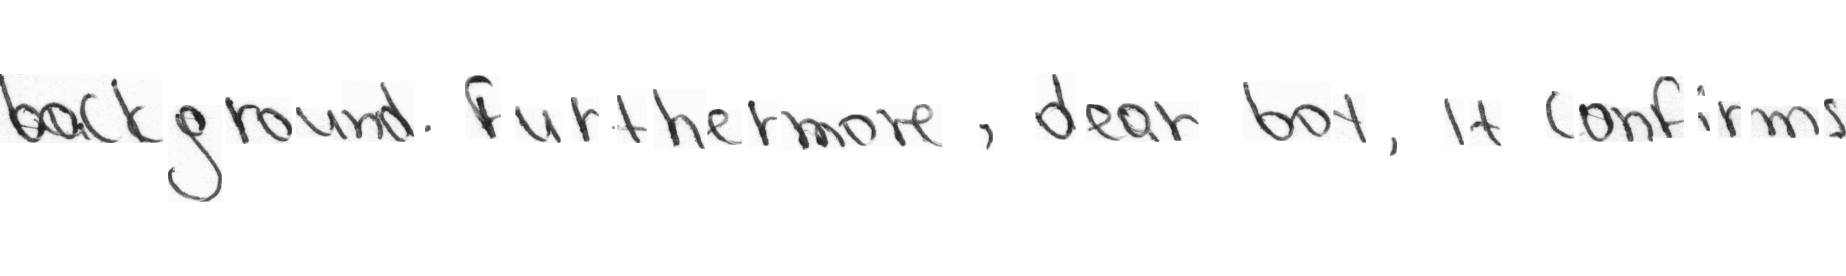 background. Furthermore, dear boy, it confirms